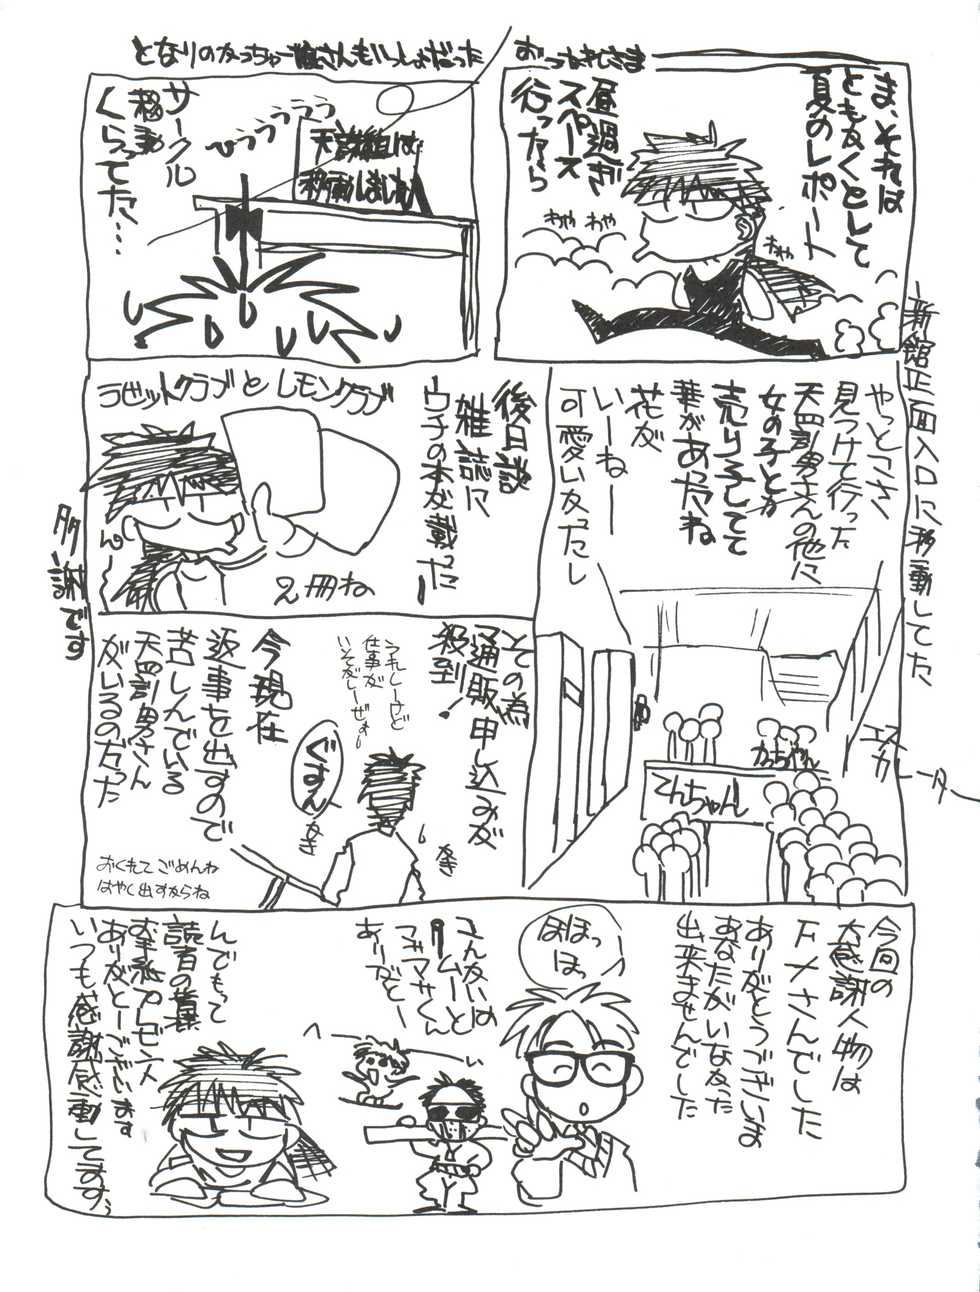 おつかれさま
ま、それは
ともかくとして
夏のレポート
昼過ぎ
スペース
行ったら
わや
わや
わや
となりのかっちゃー娘さんもいっしょだった
サークル
移動
くらってた…
ひゅううううう
天誅組は
移動しました
新館正面入口に移動してた
やっとこさ
見つけて行った
天四割男さんの他に
女の子とか
売り子してて
華があったね
花が
いーねー
可愛いかったし
エスカレーター
かっちゃん
てんちゃん
後日談
雑誌に
ウチの本が載ったー!
ラビットクラブとレモンクラブ
2冊ね
多謝です
その為
通販申し込みが
殺到!
うれしーけど
仕事が
いそがしーぜぇー
今現在
返事を出すので
苦しんでいる
天四割男さん
がいるのだった
ぐすん
なき
なき
おくれてごめんね
はやく出すからね
今回の
大感謝人物は
F.メさんでした
ありがとうございま
あなたがいなかった
出来ませんでした
ほほっ
ほっ
こんかいは
マサくん
ありがとー
んでもって
読者の皆様
お手紙プレゼント
ありがとーございます
いつも感謝感動してます。